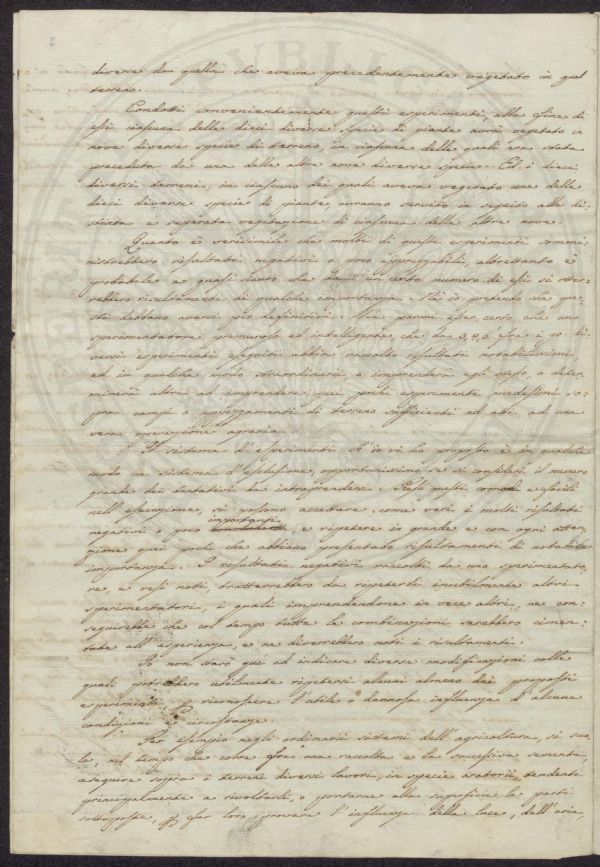 diverse da quella che aveva precedentemente vegetato in quel
terreno.
Condotti convenientemente questi esperimenti, alla fine di
essi ciascuna delle dieci diverse specie di piante avrà vegetato in
nove diverse specie di terreno, in ciascuna delle quali era stata
preceduta da una delle altre nove diverse specie. Ed i dieci
diversi terreni, in ciascuno dei quali aveva vegetato una delle
dieci diverse specie di piante, avranno servito in seguito alla di=
stinta e separata vegetazione di ciascuna delle altre nove.
Quanto è verisimile che molti di questi esperimenti sommi=
nistrebbero risultati negativi o poco apprezzabili, altrettanto è
probabile e quasi sicuro che da un certo numero di essi si otter=
rebbero risultamenti di qualche importanza. Nè io pretendo che que=
sti debbano aversi per definitivi. Ma parmi esser certo che uno
sperimentatore premuroso ed intelligente, che da 3, 4, 6 fra i 90 di=
versi esperimenti eseguiti abbia raccolto risultati notabilissimi
ed in qualche modo straordinarii, o imprenderà egli stesso, o deter=
minerà altri ad imprendere quei pochi esperimenti medesimi so=
pra campi o appezzamenti di terreno sufficienti ed atti ad una
vera operazione agraria.
Il sistema d'esperimenti ch'io vi ho proposto è in qualche
modo un sistema d'esclusione, opportunissimo se si consideri il numero
grande dei tentativi da intraprendersi. Resi questi comodi e facili
nell'esecuzione, si possono accettare come veri i molti risultati
negativi o poco importanti, e ripetere in grande e con ogni atten=
zione quei pochi che abbiano presentato risultamenti di notabile
importanza. I resultati negativi raccolti da uno sperimentato=
re, e resi noti, tratterrebbero da ripeterli inutilmente altri
sperimentatori, i quali imprendendone in vece altri, ne con=
seguirebbe che col tempo tutte le combinazioni sarebbero cimen=
tate all'esperienza, e ne diverrebbero noti i risultamenti.
Io non starò qui ad indicare diverse modificazioni colle
quali potrebbero utilmente ripetersi alcuni almeno dei proposti
esperimenti, per riconoscere l'utile o dannosa influenza d'alcune
condizioni o circostanze.
Per esempio negli ordinarii sistemi dell'agricoltura, si suo=
le, nel tempo che corre fra una raccolta e la successiva sementa,
eseguire sopra i terreni diversi lavori, in specie aratorii, tendenti
principalmente a rivoltarli, o portarne alla superficie le parti
sottoposte, per far loro provare l'influenza della luce, dell'aria,